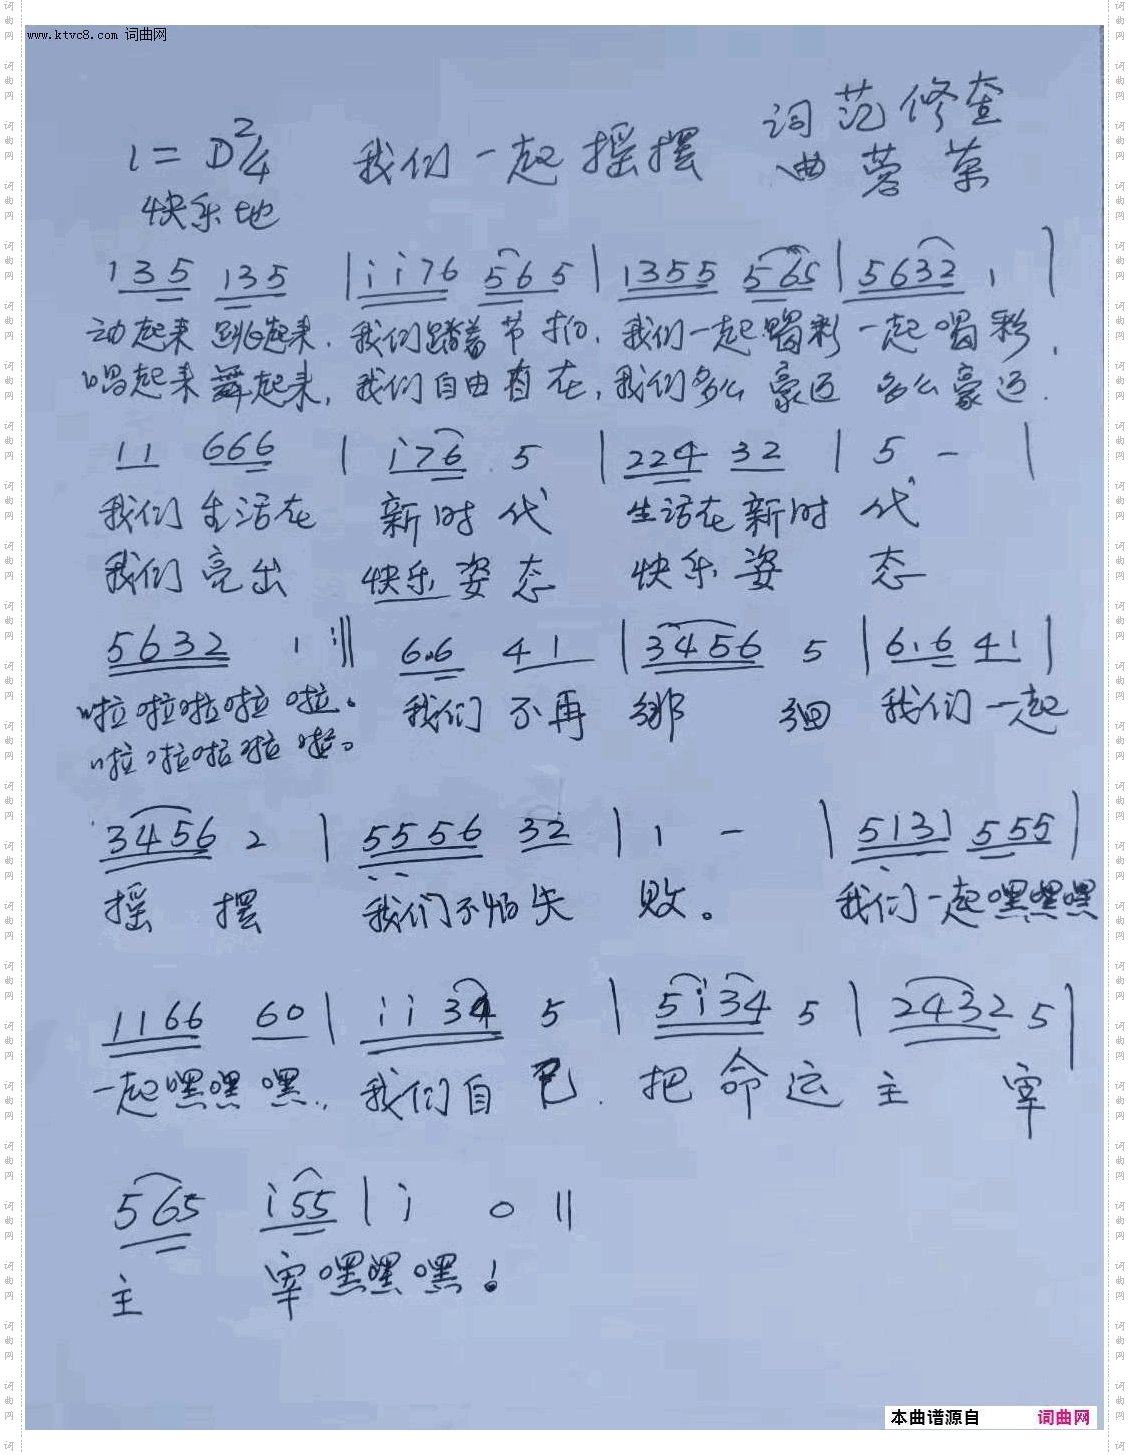 www.ktvc8.com 词曲网
词 范修奎
1=D 2/4 我们一起摇摆 曲 蓉荣
快乐地
135 135 | i i76 565 | 1355 565 | 5632 1 |
动起来 跳起来. 我们踏着节拍. 我们一起喝彩 一起喝彩.
唱起来 舞起来, 我们自由自在, 我们多么豪迈 多么豪迈.
11 666 | i76 5 | 224 32 | 5 - |
我们 生活在 新时代 生活在新时代
我们 亮出 快乐姿态 快乐姿态
5632 1 :‖ 6.6 41 | 3456 5 | 6.6 41 |
啦啦啦啦啦。 我们 不再 绑 细 我们一起
啦啦啦啦啦。
3456 2 | 5556 32 | 1 - | 5131 555 |
摇 摆 我们不怕失 败。 我们一起嘿嘿嘿
1166 60 | i i34 5 | 5i34 5 | 2432 5 |
一起嘿嘿嘿. 我们自己. 把命运主 宰
565 i55 | i 0 ‖
主 宰嘿嘿嘿!
本曲谱源自 词曲网